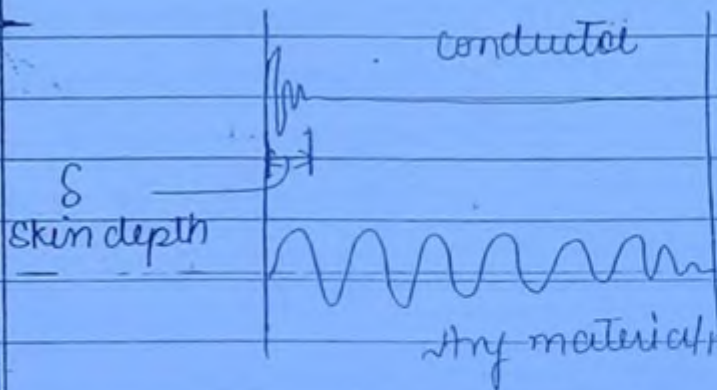 conductor
δ
skin depth
Any material